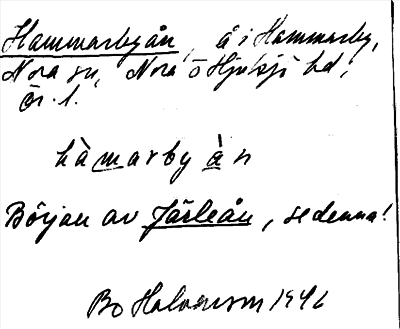 Hammarbyån, å i Hammarby,
Nora sn, Nora o Hjulsjö hd,
Ör. l.
hàmarby à n
Början av Järleån, se denna!
Bo Halvarson 1946